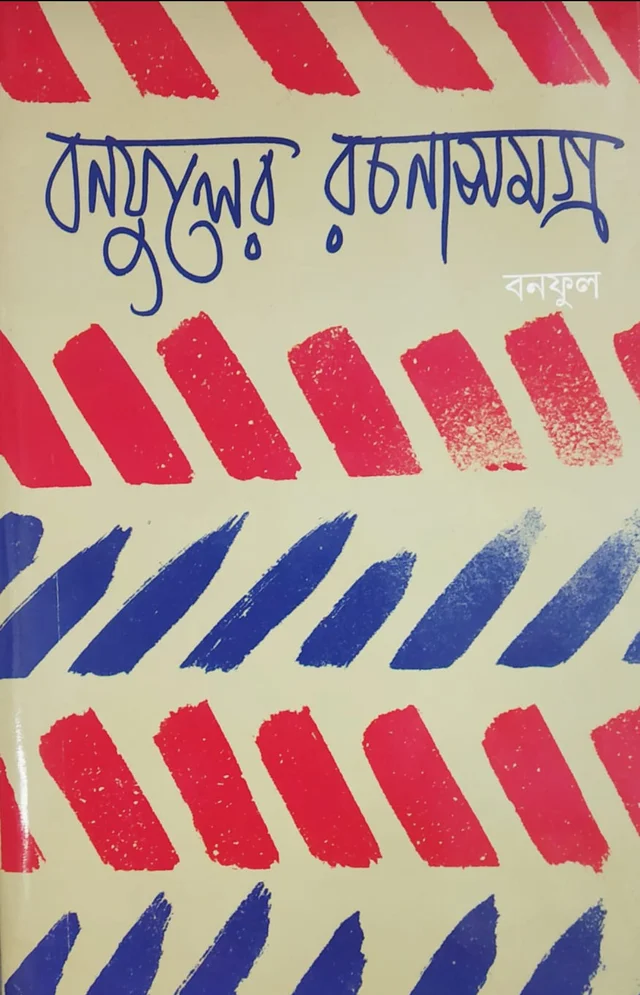 বনফুলের রচনাসমগ্র
বনফুল